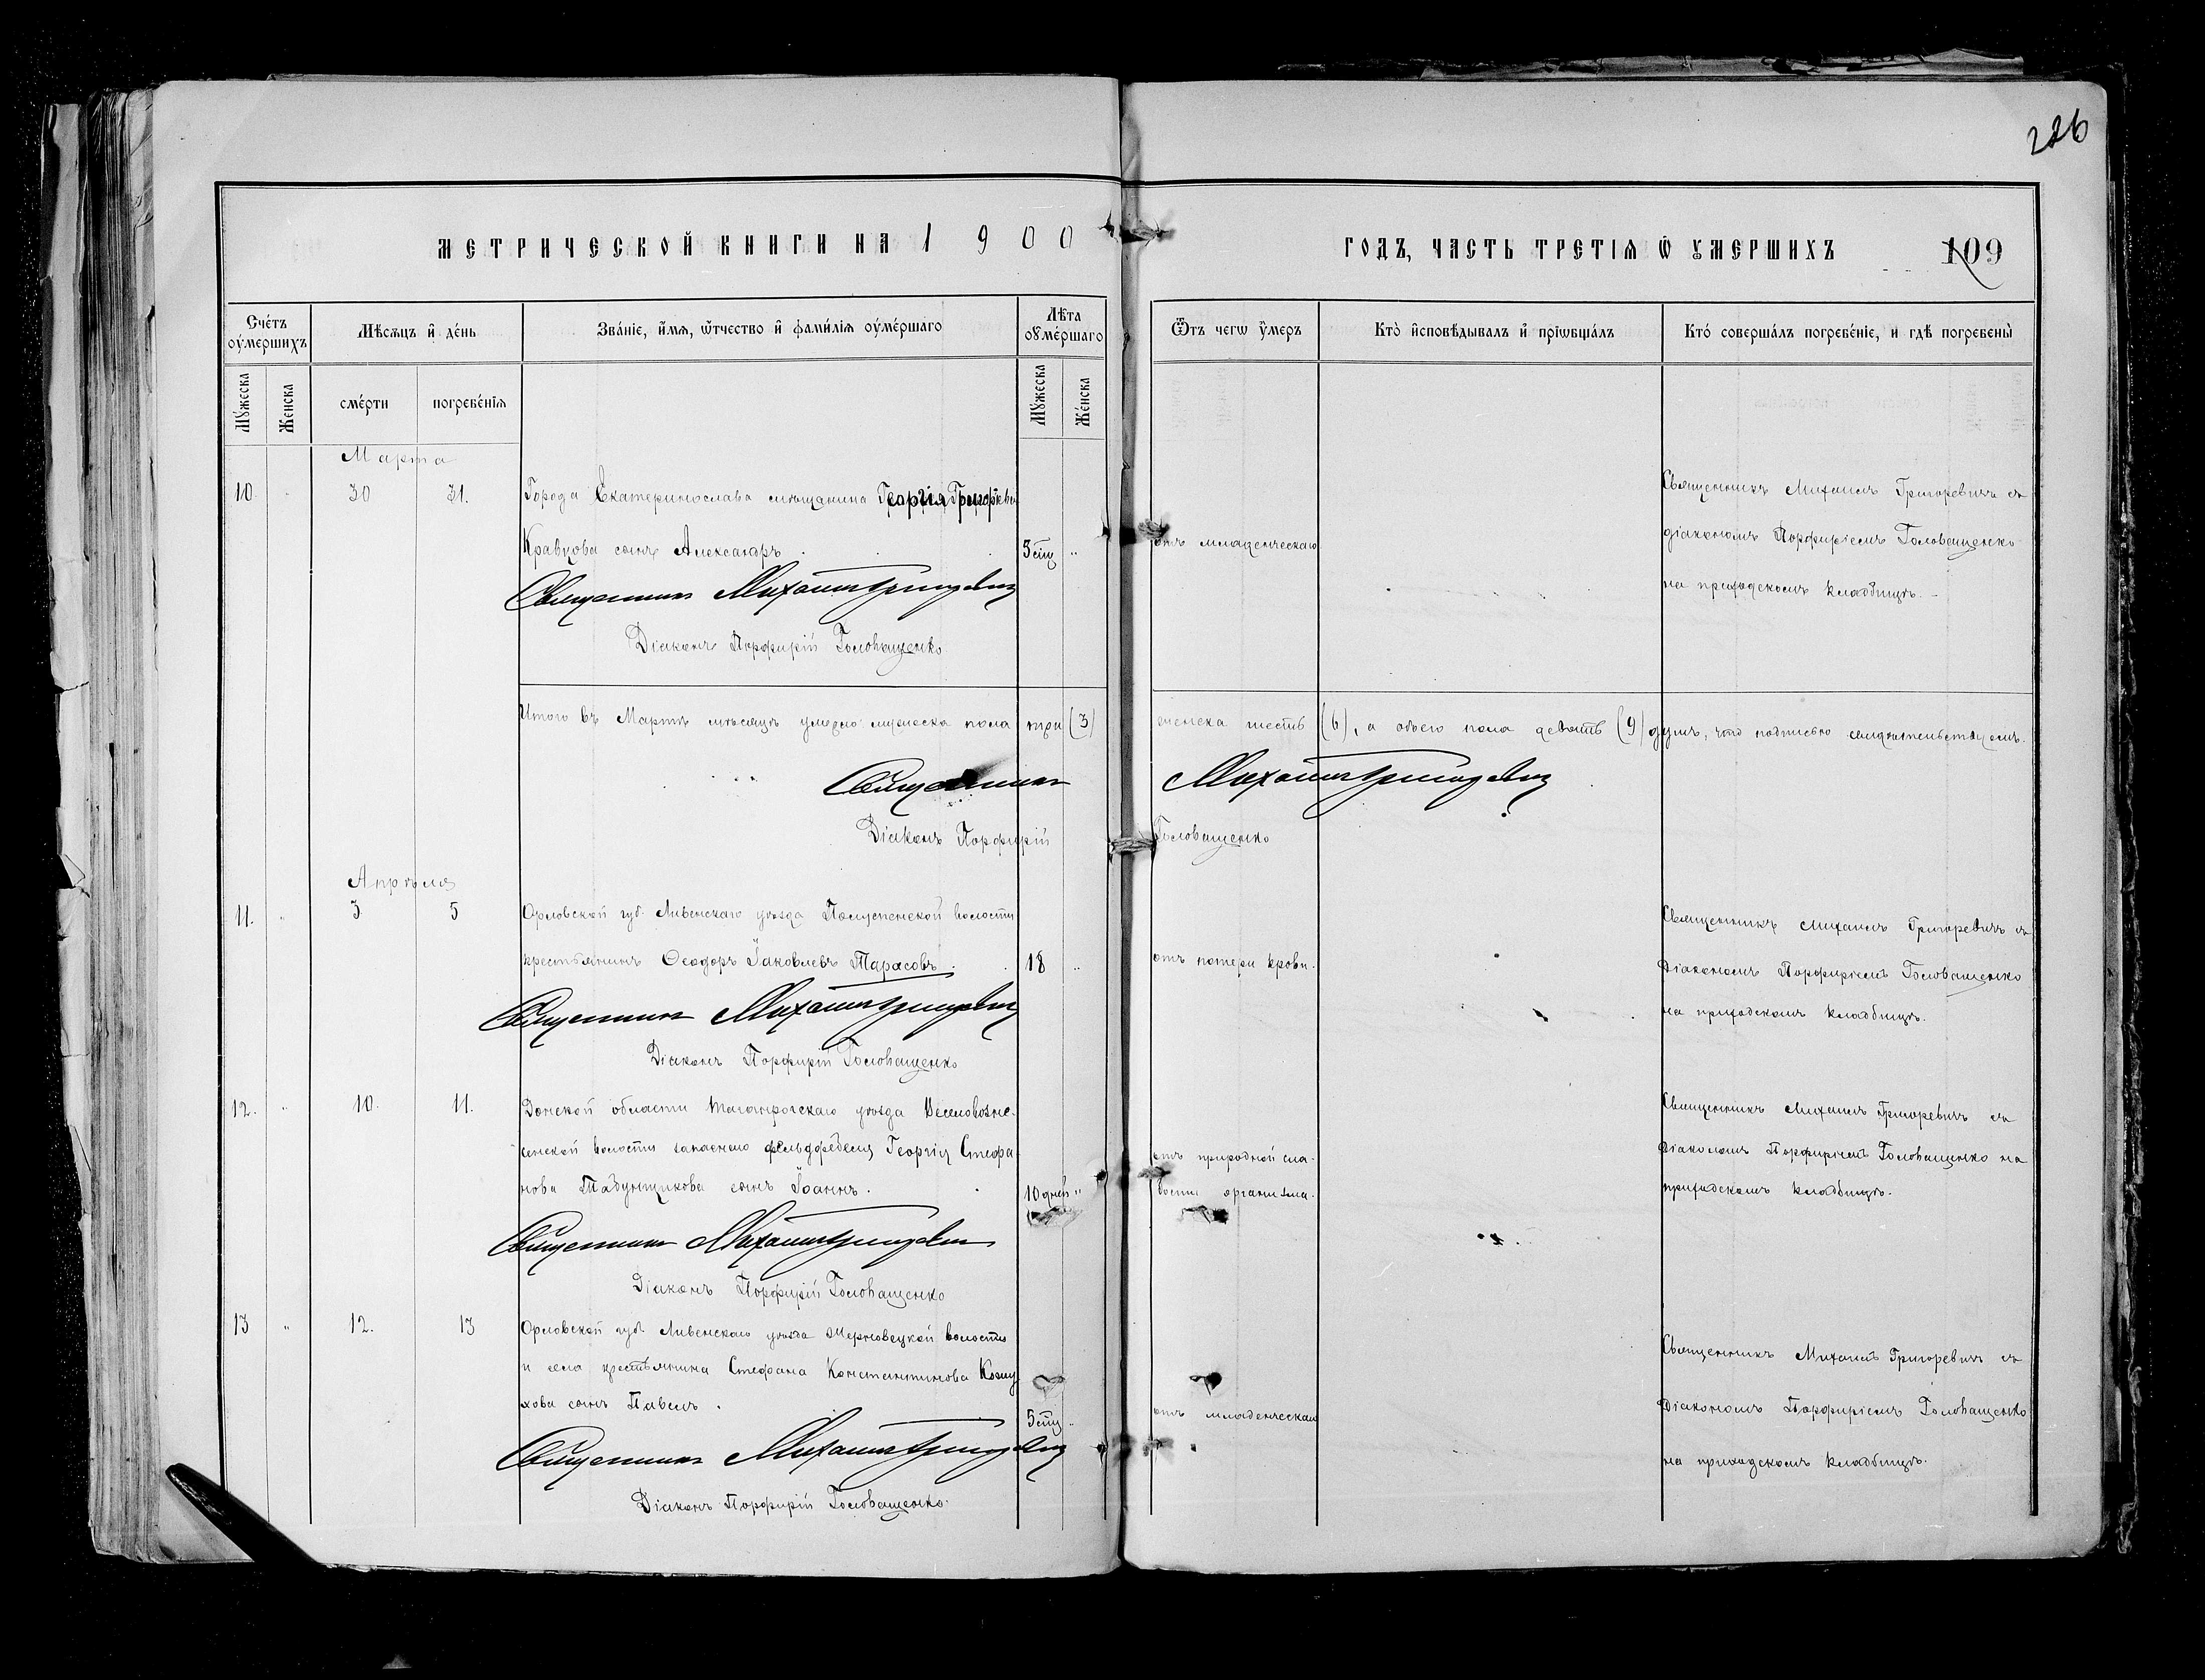 226
МЕТРИЧЕСКОЙ КНИГИ НА 1900
ГОДЪ, ЧАСТЬ ТРЕТІѦ Ѿ ОУМЕРШИХЪ 109
Сче́тъ оу́мершихъ
Мѣсѧцъ и҆ де́нь
Зва́нїе, и҆́мѧ, ѿтчество и҆ фами́лїѧ оуме́ршаго
Лѣ́та оуме́ршаго
Ѿтъ чегѡ ᲂу҆́меръ
Кто̀ и҆сповѣ́дывалъ и҆ прїѡбща́лъ
Кто́ соверша́лъ погребе́нїе, и гдѣ̀ погребены̀
Мꙋжеска
Женска
сме́рти
погребе́нїѧ
Мꙋжеска
Же́нска
Марта
10. " 30 31. Города Екатеринослава мѣщанина Георгія Григорьева
Кравцова сынъ Александръ. 5 мѣц "
Священникъ Михаилъ Григоревичъ
Діаконъ Порфирій Головащенко
отъ младенческаго
Священникъ Михаилъ Григоревичъ съ
діакономъ Порфиріемъ Головащенко
на приходскомъ кладбищѣ.
Итого въ Мартѣ мѣсяцѣ умерло мужеска пола три (3) женска шесть (6), а обоего пола девять (9) душъ, что подписью свидѣтельствуемъ.
Священникъ Михаилъ Григоревичъ
Діаконъ Порфирій Головащенко
Апрѣля
11. " 3 5 Орловской губ. Ливенскаго уѣзда волости
крестьянинъ Ѳеодоръ Іаковлевъ Тарасовъ. 18 "
Священникъ Михаилъ Григоревичъ
Діаконъ Порфирій Головащенко
отъ потери крови.
Священникъ Михаилъ Григоревичъ съ
Діакономъ Порфиріемъ Головащенко
на приходскомъ кладбищѣ.
12. " 10. 11. Донской области Таганрогскаго уѣзда Веселовозне-
сенской волости запаснаго фельдфебеля Георгія Стефа-
нова Табунщикова сынъ Іоаннъ. 10 дней "
Священникъ Михаилъ Григоревичъ
Діаконъ Порфирій Головащенко
отъ природной сла-
бости организма.
Священникъ Михаилъ Григоревичъ съ
Діакономъ Порфиріемъ Головащенко на
приходскомъ кладбищѣ.
13 " 12. 13 Орловской губ. Ливенскаго уѣзда волости
и села крестьянина Стефана Константинова Кожу-
хова сынъ Павелъ. 5 мѣц "
Священникъ Михаилъ Григоревичъ
Діаконъ Порфирій Головащенко.
отъ младенческаго
Священникъ Михаилъ Григоревичъ съ
Діакономъ Порфиріемъ Головащенко
на приходскомъ кладбищѣ.